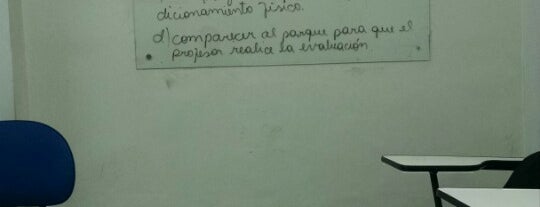 dicionamiento físico.
d) comparecer al parque para que el
profesor realice la evaluación.